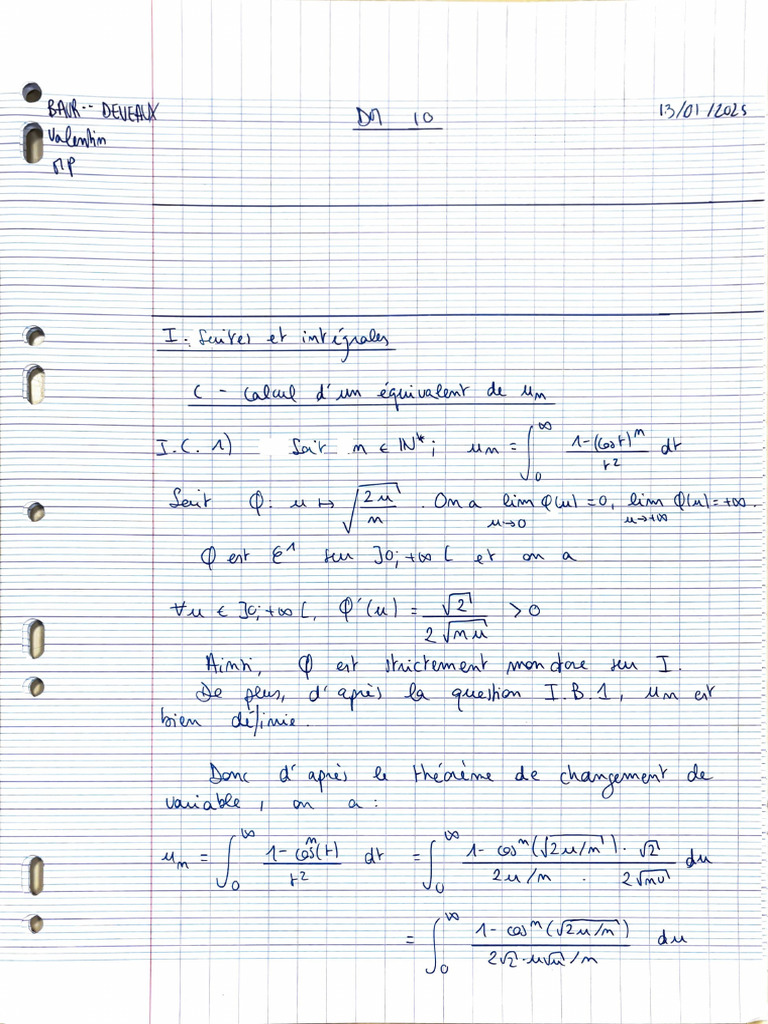 BAUR-- DEVEAUX
DM 10
13/01/2025
Valentin
MP
I. Suites et intégrales
C - Calcul d'un équivalent de u_n
I.C. 1) Soit n ∈ ℕ*; u_n = ∫_0^∞ (1-(cos t)^n)/t² dt
Soit φ: u ↦ √(2u/n). On a lim_{u→0} φ(u) = 0, lim_{u→+∞} φ(u) = +∞.
φ est C¹ sur ]0;+∞[ et on a
∀u ∈ ]0;+∞[, φ'(u) = √2/(2√(nu)) > 0
Ainsi, φ est strictement monotone sur I.
De plus, d'après la question I.B.1, u_n est
bien définie.
Donc d'après le théorème de changement de
variable, on a :
u_n = ∫_0^∞ (1-cos^n(t))/t² dt = ∫_0^∞ (1-cos^n(√(2u/n)) · √2)/(2u/n · 2√(nu)) du
= ∫_0^∞ (1-cos^n(√(2u/n)))/(2√2·u√u/n) du